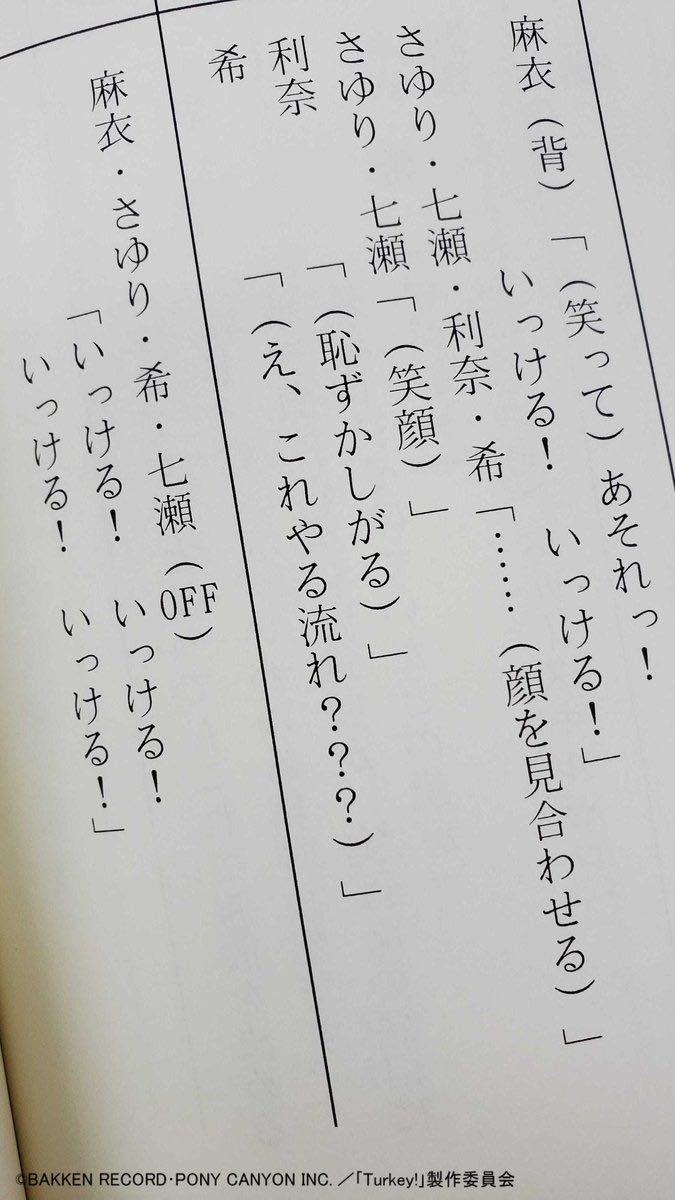 麻衣（背）「（笑って）あそれっ！
いっける！　いっける！」
さゆり・七瀬・利奈・希「……（顔を見合わせる）」
さゆり・七瀬「（笑顔）」
利奈「（恥ずかしがる）」
希「（え、これやる流れ？？？）」
麻衣・さゆり・希・七瀬（OFF）
「いっける！　いっける！
いっける！　いっける！」
©BAKKEN RECORD・PONY CANYON INC. ／「Turkey!」製作委員会